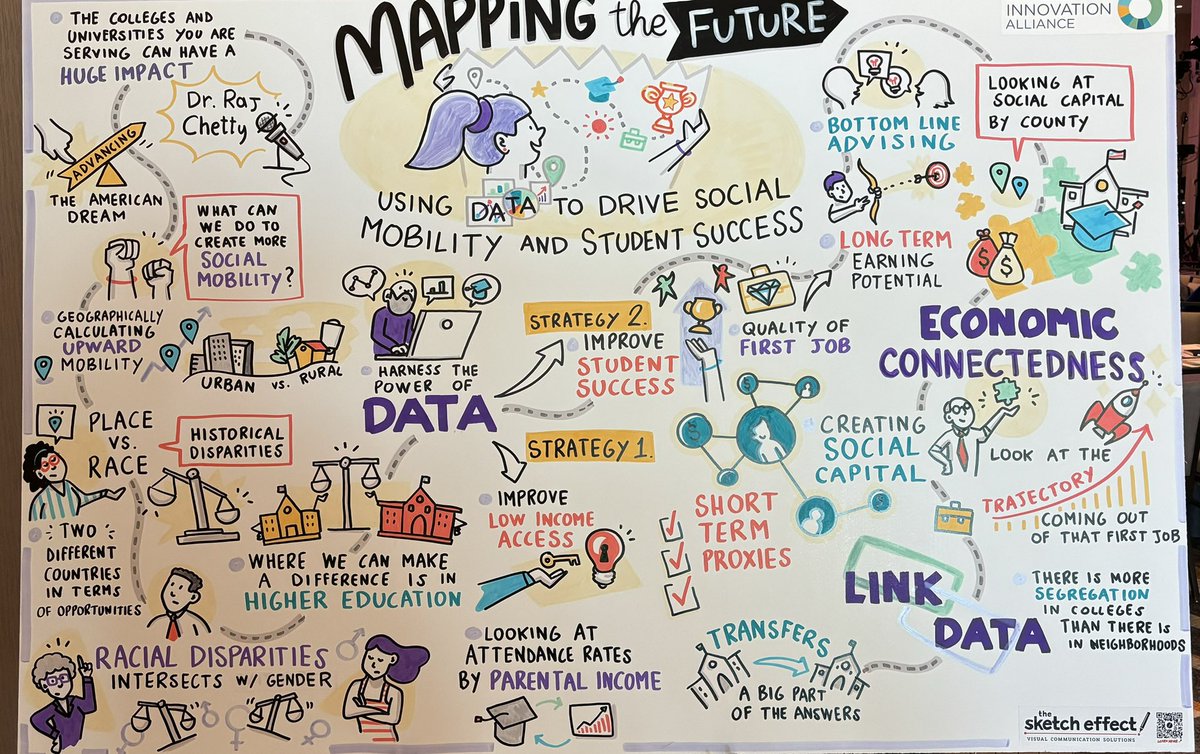 MAPPING the FUTURE
USING DATA TO DRIVE SOCIAL
MOBILITY AND STUDENT SUCCESS
INNOVATION
ALLIANCE
THE COLLEGES AND
UNIVERSITIES YOU ARE
SERVING CAN HAVE A
HUGE IMPACT
Dr. Raj
Chetty
ADVANCING
THE AMERICAN
DREAM
WHAT CAN
WE DO TO
CREATE MORE
SOCIAL
MOBILITY?
GEOGRAPHICALLY
CALCULATING
UPWARD
MOBILITY
URBAN VS. RURAL
PLACE
VS.
RACE
HISTORICAL
DISPARITIES
TWO
DIFFERENT
COUNTRIES
IN TERMS
OF OPPORTUNITIES
WHERE WE CAN MAKE
A DIFFERENCE IS IN
HIGHER EDUCATION
RACIAL DISPARITIES
INTERSECTS W/ GENDER
HARNESS THE
POWER OF
DATA
STRATEGY 2.
IMPROVE
STUDENT
SUCCESS
STRATEGY 1.
IMPROVE
LOW INCOME
ACCESS
LOOKING AT
ATTENDANCE RATES
BY PARENTAL INCOME
QUALITY OF
FIRST JOB
BOTTOM LINE
ADVISING
LONG TERM
EARNING
POTENTIAL
LOOKING AT
SOCIAL CAPITAL
BY COUNTY
$
$
ECONOMIC
CONNECTEDNESS
$
$
$
CREATING
SOCIAL
CAPITAL
SHORT
TERM
PROXIES
LOOK AT THE
TRAJECTORY
COMING OUT
OF THAT FIRST JOB
LINK
DATA
THERE IS MORE
SEGREGATION
IN COLLEGES
THAN THERE IS
IN NEIGHBORHOODS
TRANSFERS
A BIG PART
OF THE ANSWERS
the
sketch effect
VISUAL COMMUNICATION SOLUTIONS